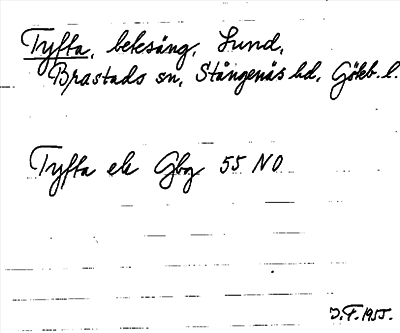 Tyfta, beksäng, Lund,
Brastads sn, Stångenäs hd, Göteb. l.
Tyfta ek Gbg 55 NO
J.F. 1955.